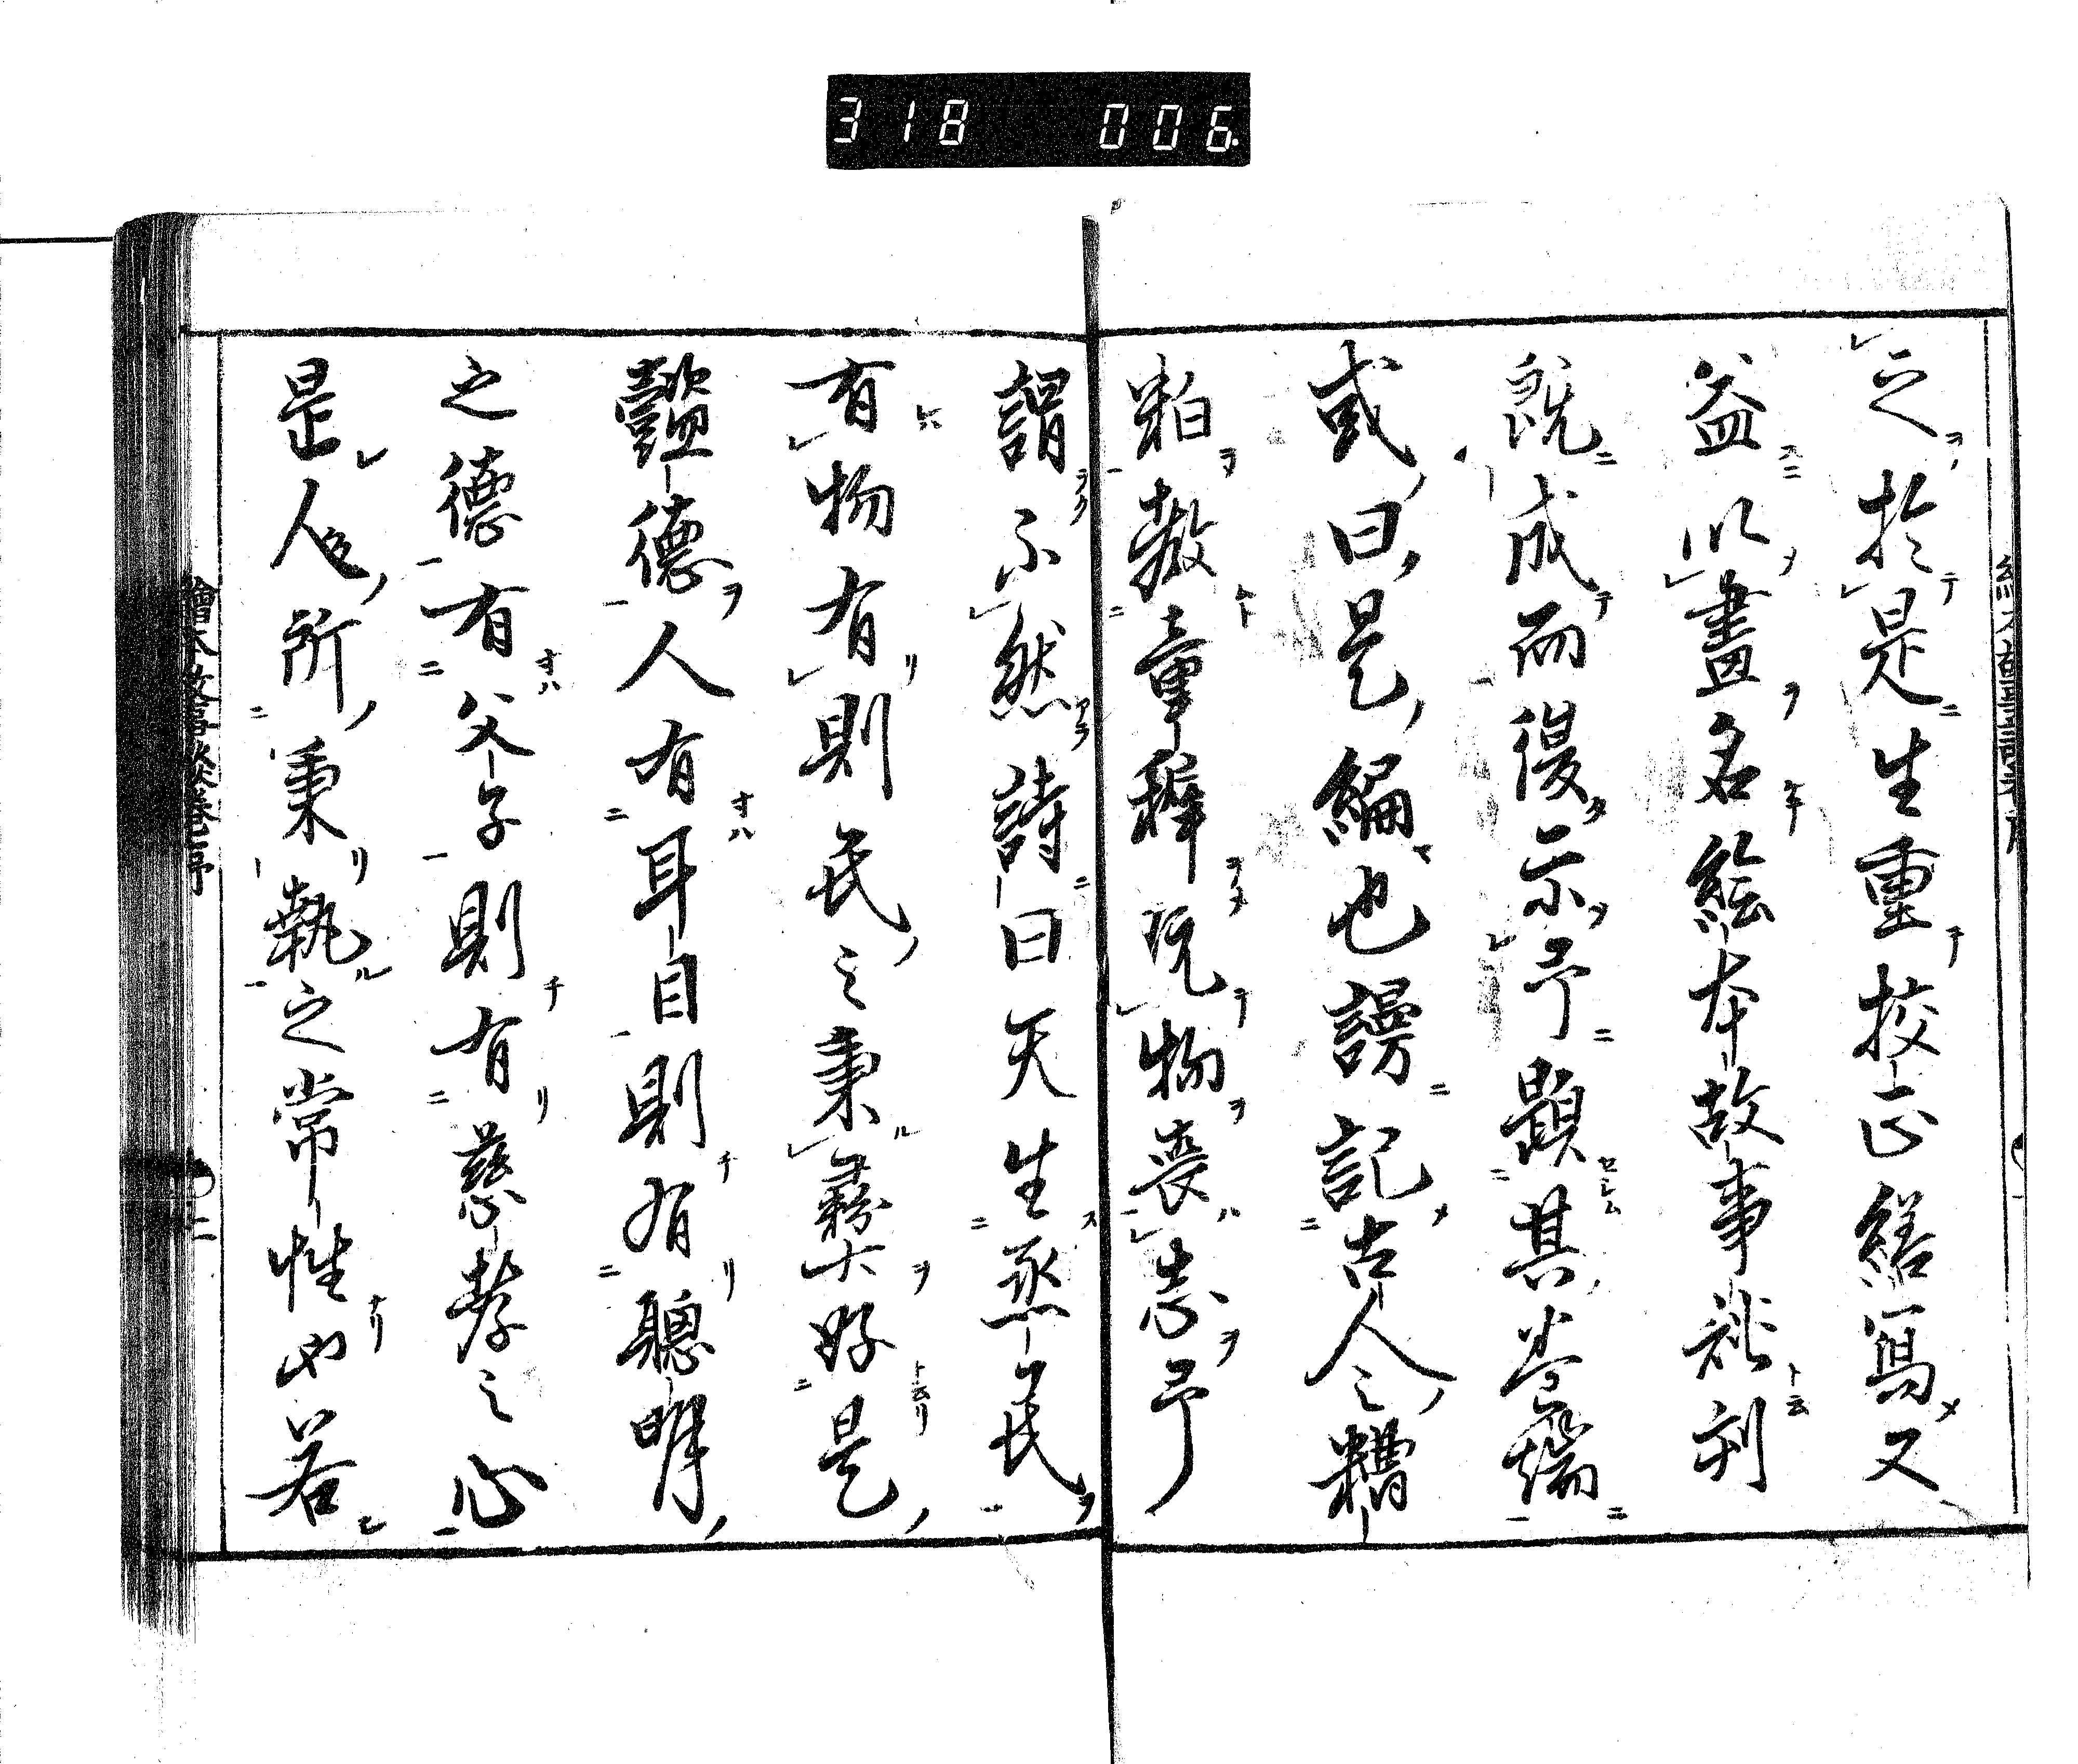 318 006
之於是生重挍正繕寫又
益以畫名絵本故事談刻
既成而復示予題其巻端
或曰是編也謾記古人之糟
粕教童穉玩物喪志予
謂不然詩曰天生烝民
有物有則民之秉彛好是
懿德人有耳目則有聰明
之德有父子則有慈孝之心
是人民所秉執之常性也若
繪本故事談卷之序
二